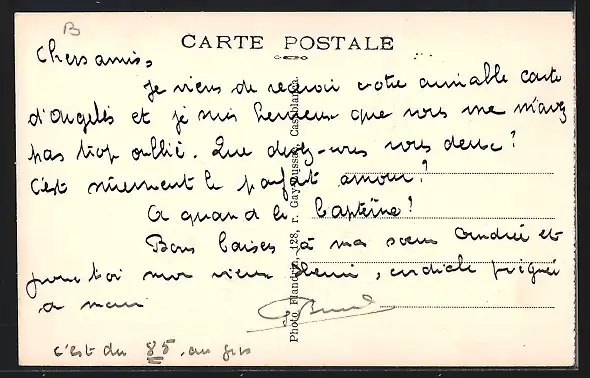 B
CARTE POSTALE
Chers amis,
Je viens de recevoir votre aimable carte
d'Angelès et je suis heureux que vous ne m'avez
pas trop oublié. Que devez-vous vous deux ?
C'est sûrement le parfait amour !
A quand le baptème !
Bons baisers à ma sœur Andrée et
pour toi mon vieux Henri, cordiale poignée
de main
c'est du 85. au gros
Photo Flandrin, 128, r. Gay-Lussac, Casablanca.